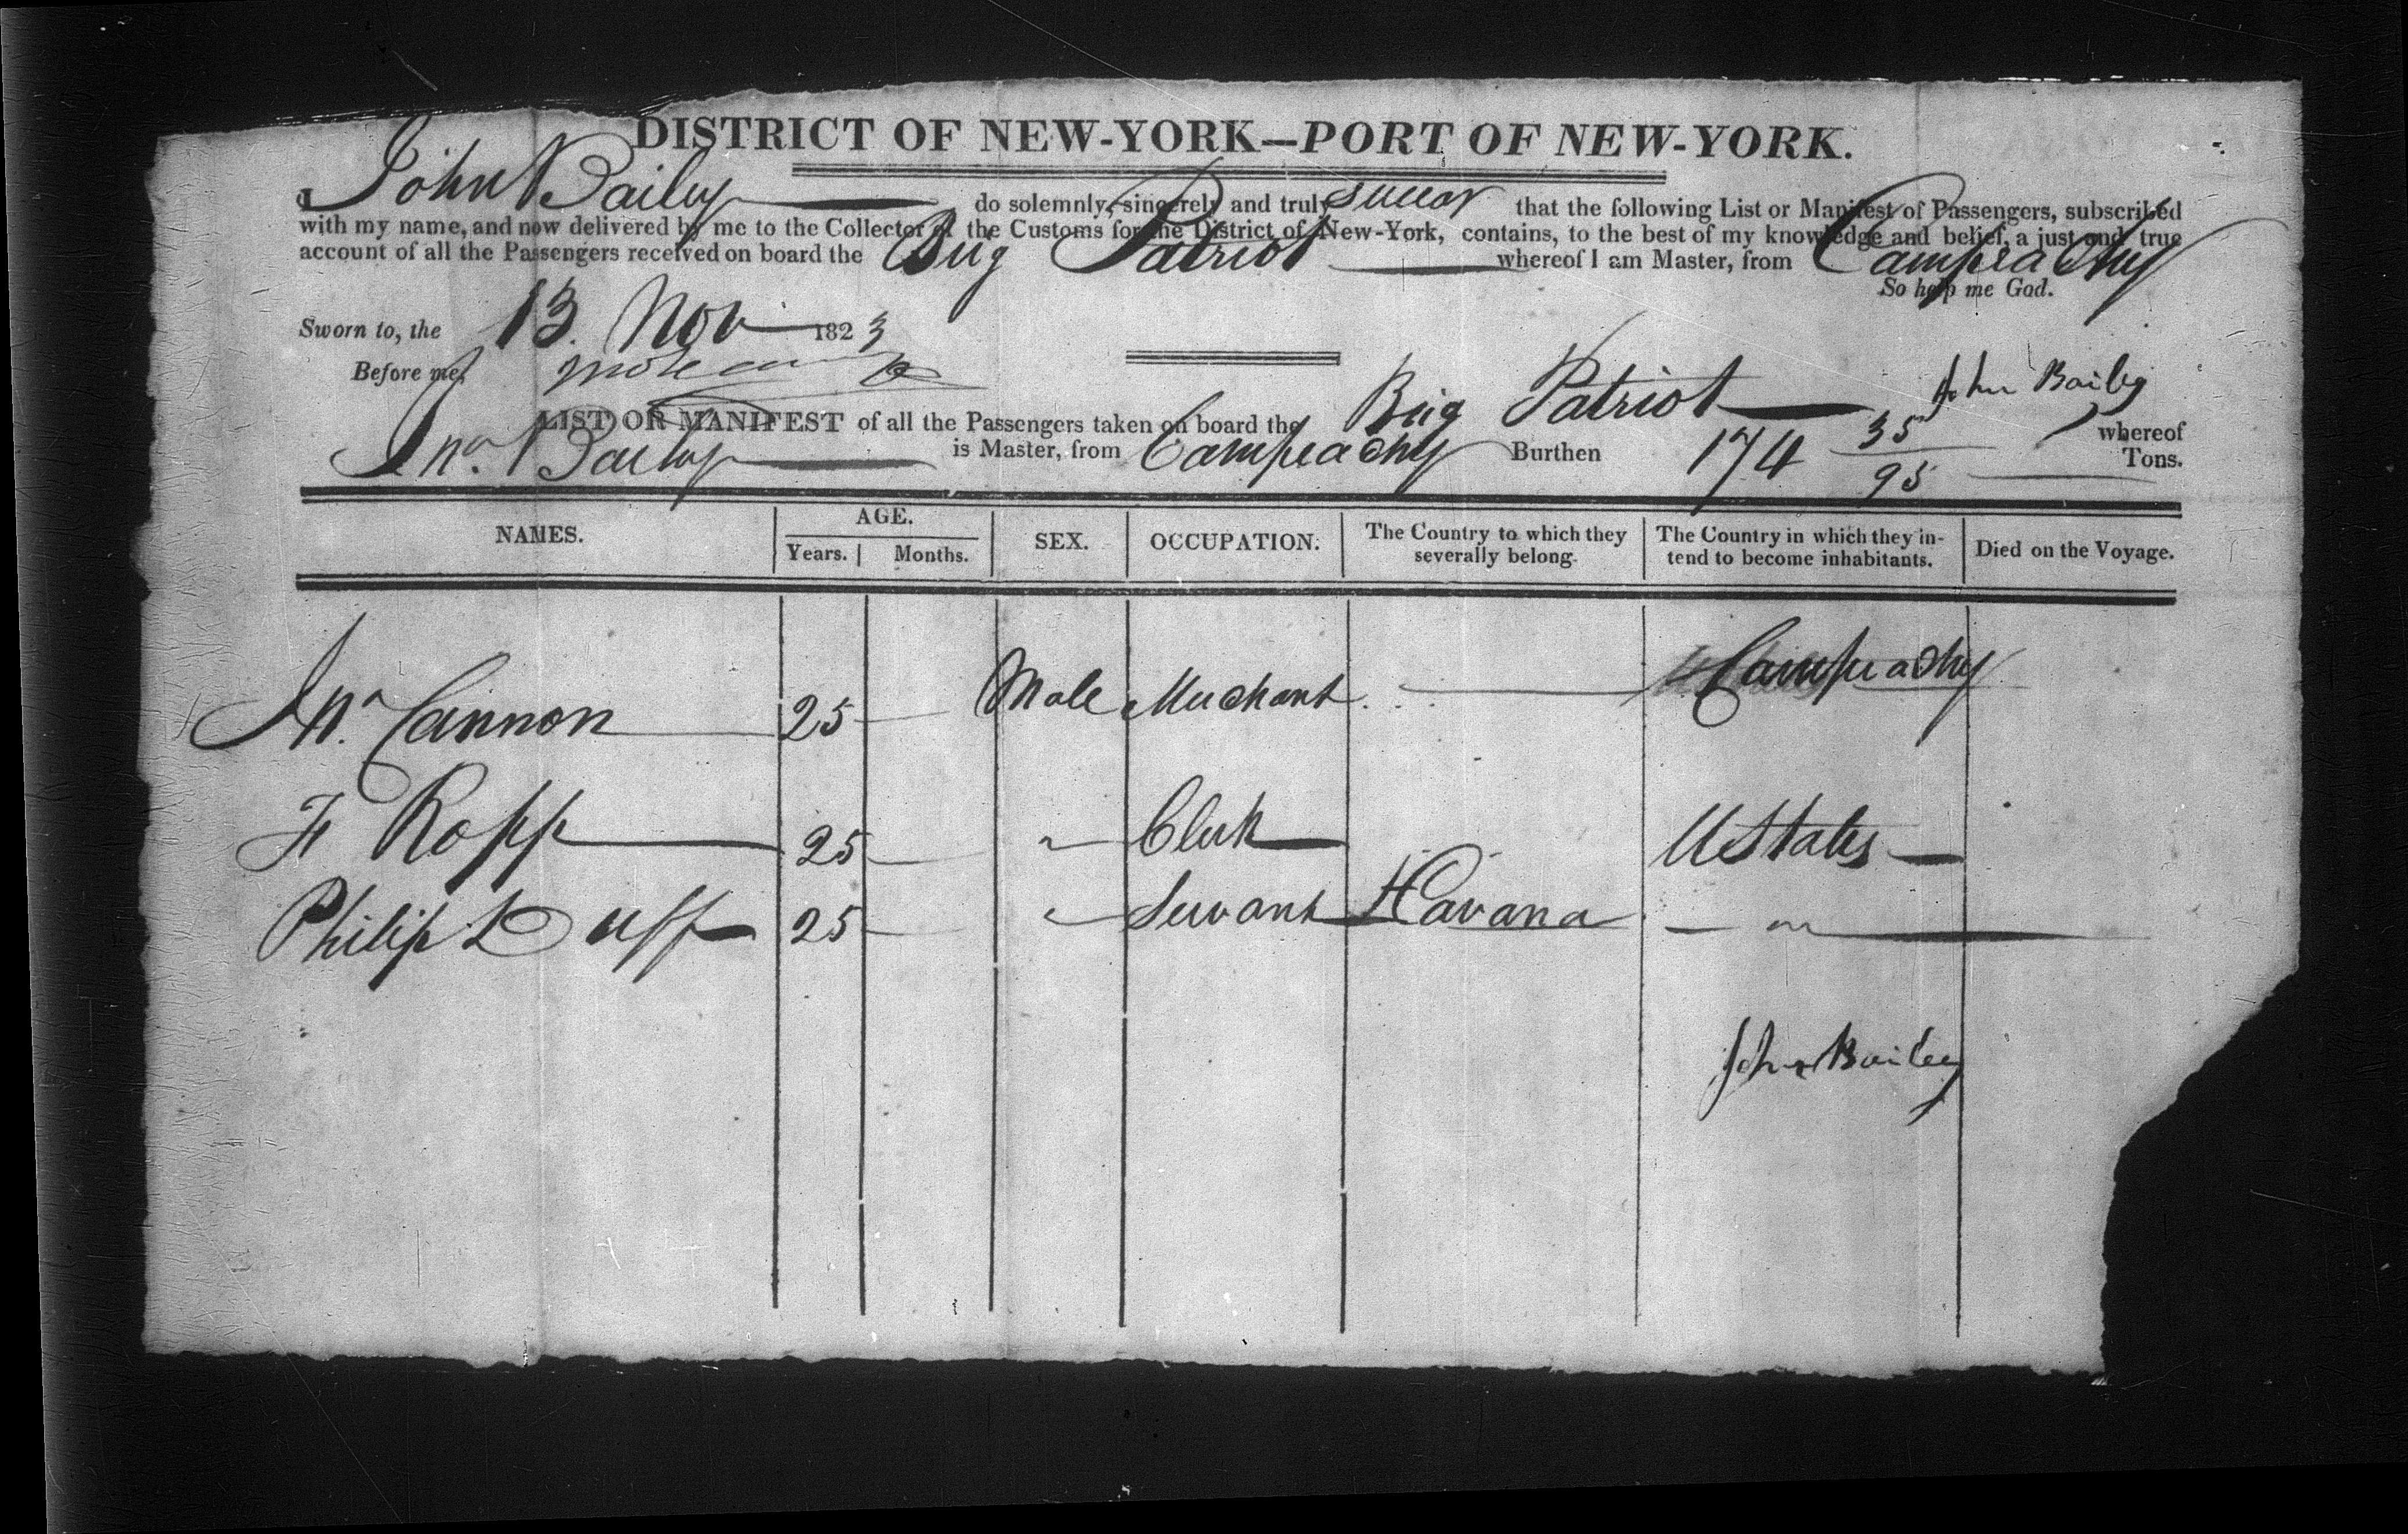 DISTRICT OF NEW-YORK—PORT OF NEW-YORK.
I John Bailey do solemnly, sincerely and truly swear that the following List or Manifest of Passengers, subscribed
with my name, and now delivered by me to the Collector of the Customs for the District of New-York, contains, to the best of my knowledge and belief, a just and true
account of all the Passengers received on board the Brig Patriot whereof I am Master, from Campeachy
So help me God.
Sworn to, the 13. Nov 1823
Before me,
John Bailey
LIST OR MANIFEST of all the Passengers taken on board the Brig Patriot whereof
Jno. Bailey is Master, from Campeachy Burthen 174 35/95 Tons.
NAMES. AGE. Years. Months. SEX. OCCUPATION. The Country to which they severally belong. The Country in which they intend to become inhabitants. Died on the Voyage.
Jno. Cannon 25 Male Merchant Campeachy
F Ropp 25 " Clerk U States
Philip Duff 25 " Servant Havana "
John Bailey